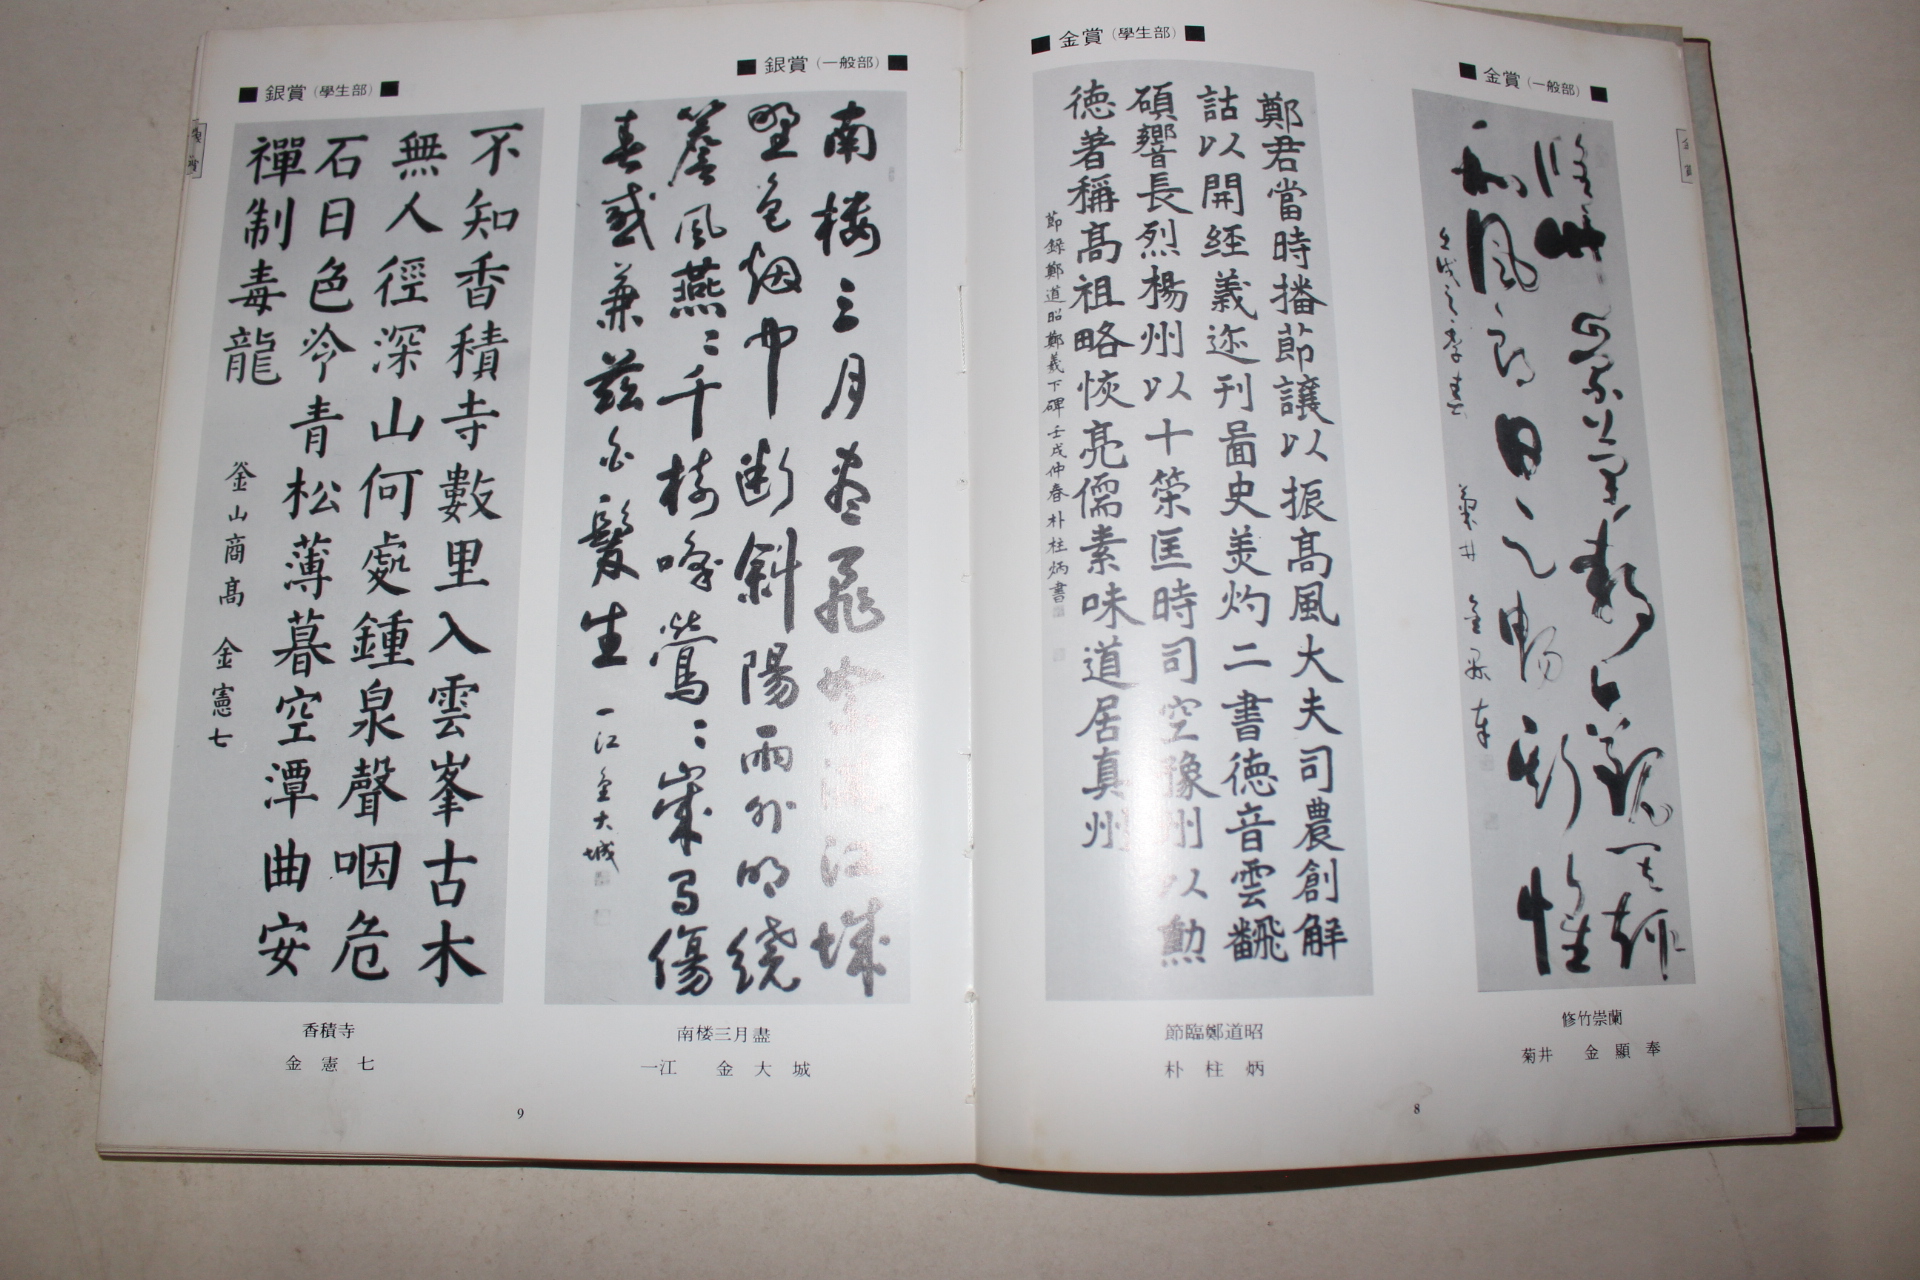 金賞（一般部）
和風 日之暢 惟
菊井
修竹崇蘭
菊井 金顯奉
金賞（學生部）
鄭君當時播節讓以振高風大夫司農創解
詁以開經義迩刊啚史美灼二書德音雲飜
碩響長烈楊州以十策匡時司空豫州以勲
德著稱高祖略恢亮儒素味道居真州
節錄鄭道昭鄭羲下碑壬戌仲春朴柱炳書
節臨鄭道昭
朴柱炳
8
銀賞（一般部）
南楼三月盡飛 江城
野色烟中斷斜陽雨外明繞
簷風燕〻千樹喚鶯〻 傷
春感兼茲白髮生
一江金大城
南楼三月盡
一江 金大城
銀賞（學生部）
不知香積寺數里入雲峯古木
無人徑深山何處鍾泉聲咽危
石日色冷青松薄暮空潭曲安
禪制毒龍
釜山商高 金憲七
香積寺
金憲七
9